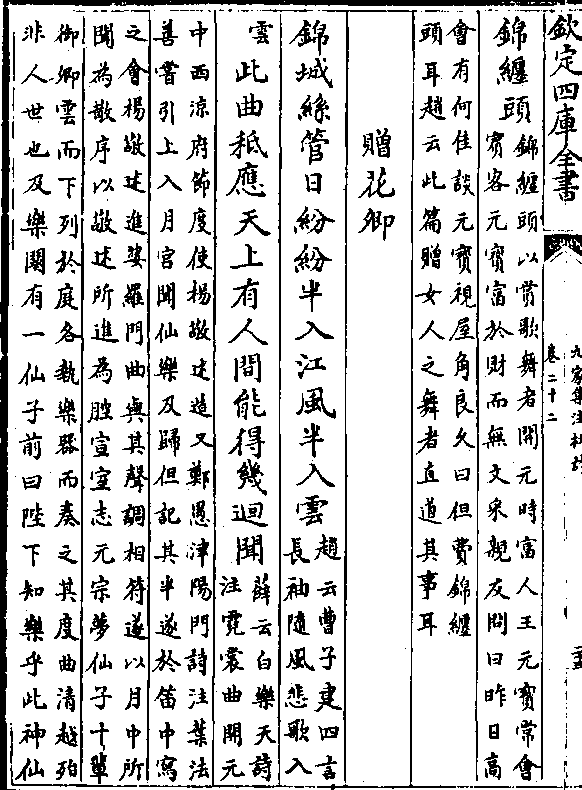 欽定四庫全書
九家集注杜詩
卷二十二
錦纏頭
錦纏頭以賞歌舞者開元時富人王元寶常會
賓客元寶富於財而無文采親友問曰昨日高
會有何佳談元寶視屋角良久曰但費錦纏
頭耳趙云此篇贈女人之舞者直道其事耳
贈花卿
錦城絲管日紛紛半入江風半入雲
趙云曹子建四言
長袖隨風悲歌入
雲
此曲秪應天上有人間能得幾迴聞
薛云白樂天詩
注霓裳曲開元
中西涼府節度使楊敬述造又鄭愚津陽門詩注葉法
善嘗引上入月宮聞仙樂及歸但記其半遂於笛中寫
之會楊敬述進婆羅門曲與其聲調相符遂以月中所
聞為散序以敬述所進為腔宣室志元宗夢仙子十輩
御卿雲而下列於庭各執樂器而奏之其度曲清越殆
非人世也及樂闋有一仙子前曰陛下知樂乎此神仙